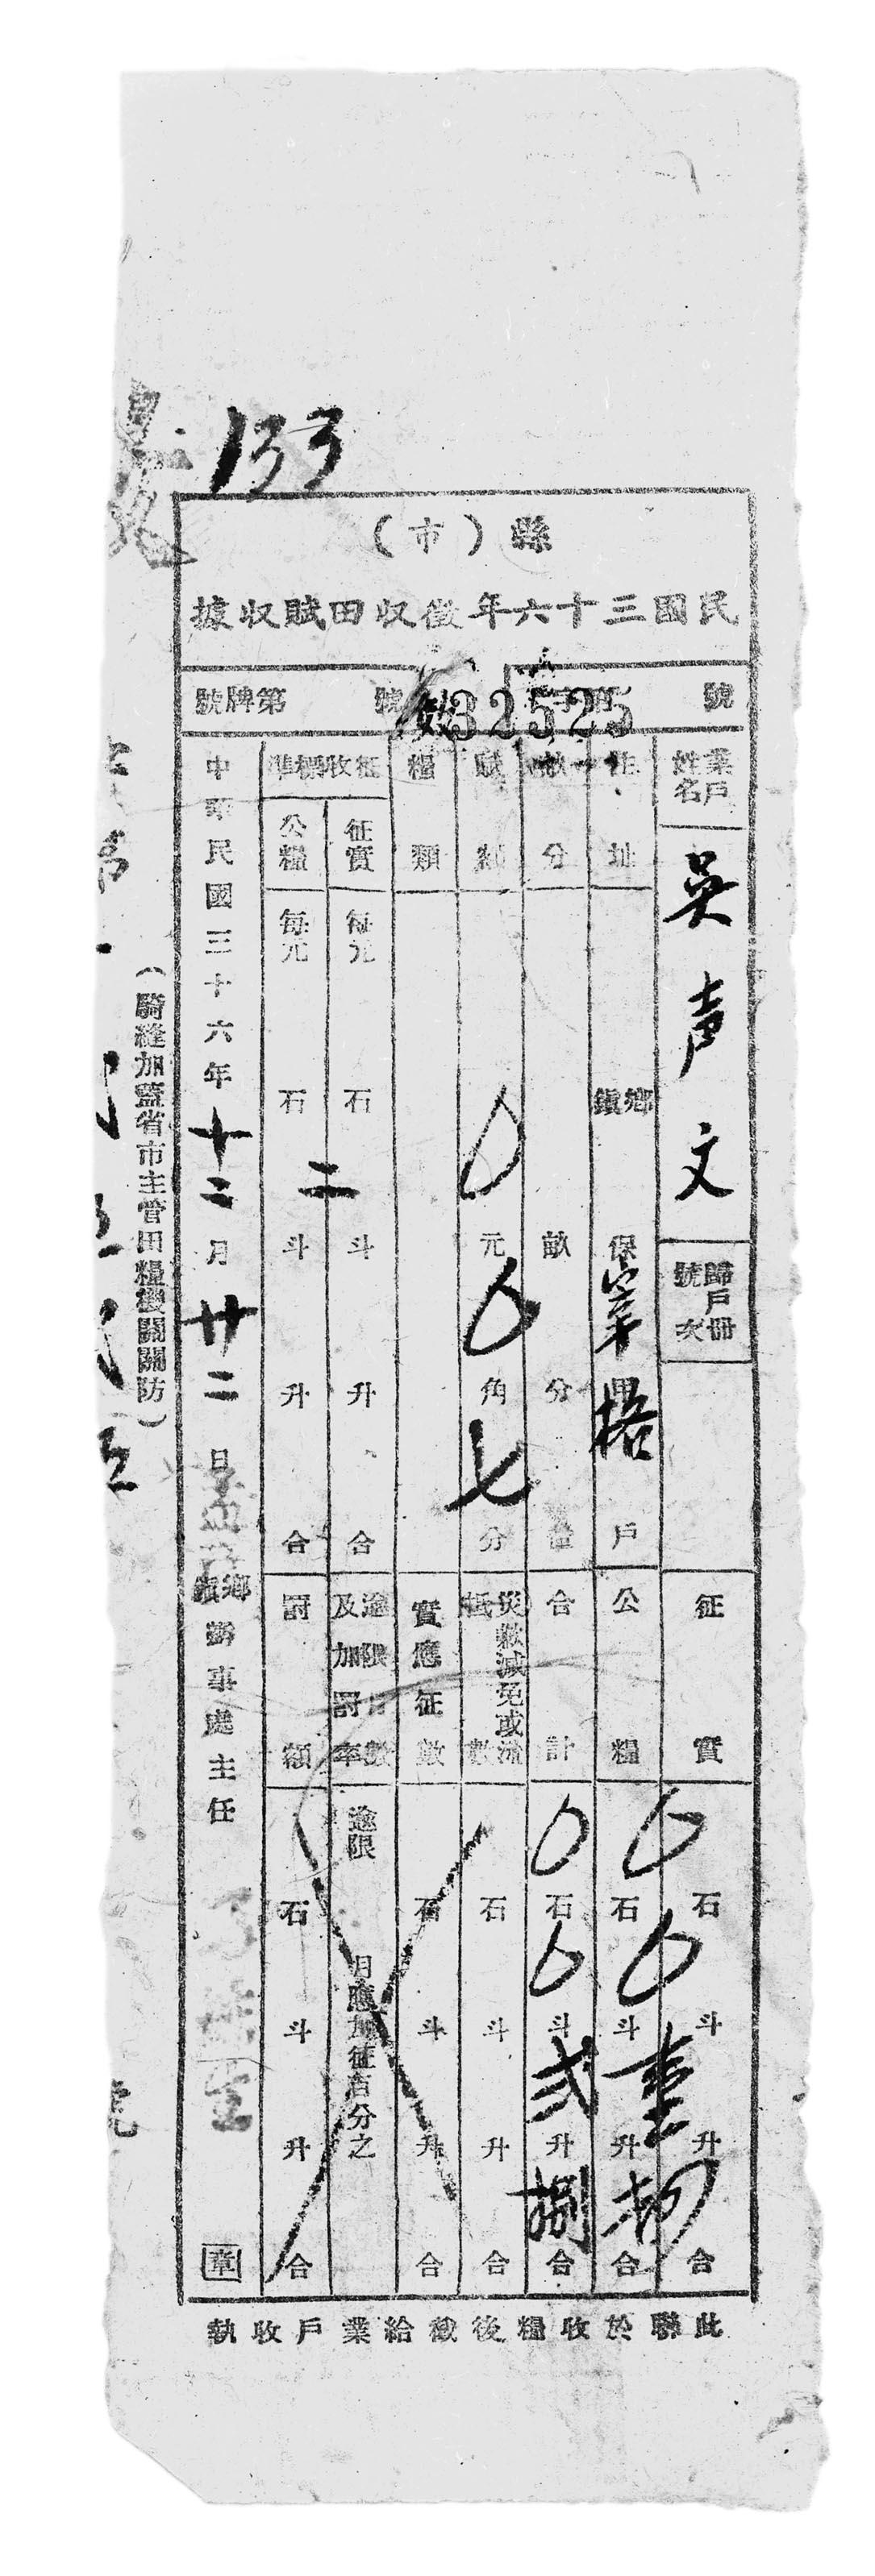 133
縣（市）
民國三十六年徵收田賦收據
號
32525
號牌第 號
業戶姓名
吳声文
歸戶冊號次
住址
鄉鎮
保
甲
拾
戶
畝分
畝
分
賦額
0元
0角
七分
糧類
征收標準
征實
每元
石
二
斗
升
合
公糧
每元
石
斗
升
合
中華民國三十六年十二月廿二日
鄉鎮辦事處主任
章
征實
石
斗
升
合
公糧
0石
0斗
壹升
合
合計
0石
0斗
弍升
捌合
災歉減免或流抵數
石
斗
升
合
實應征數
石
斗
升
合
逾限月數及加罰率
逾限 月應加征百分之
罰額
石
斗
升
合
（騎縫加蓋省市主管田糧機關關防）
此聯於收糧後截給業戶收執